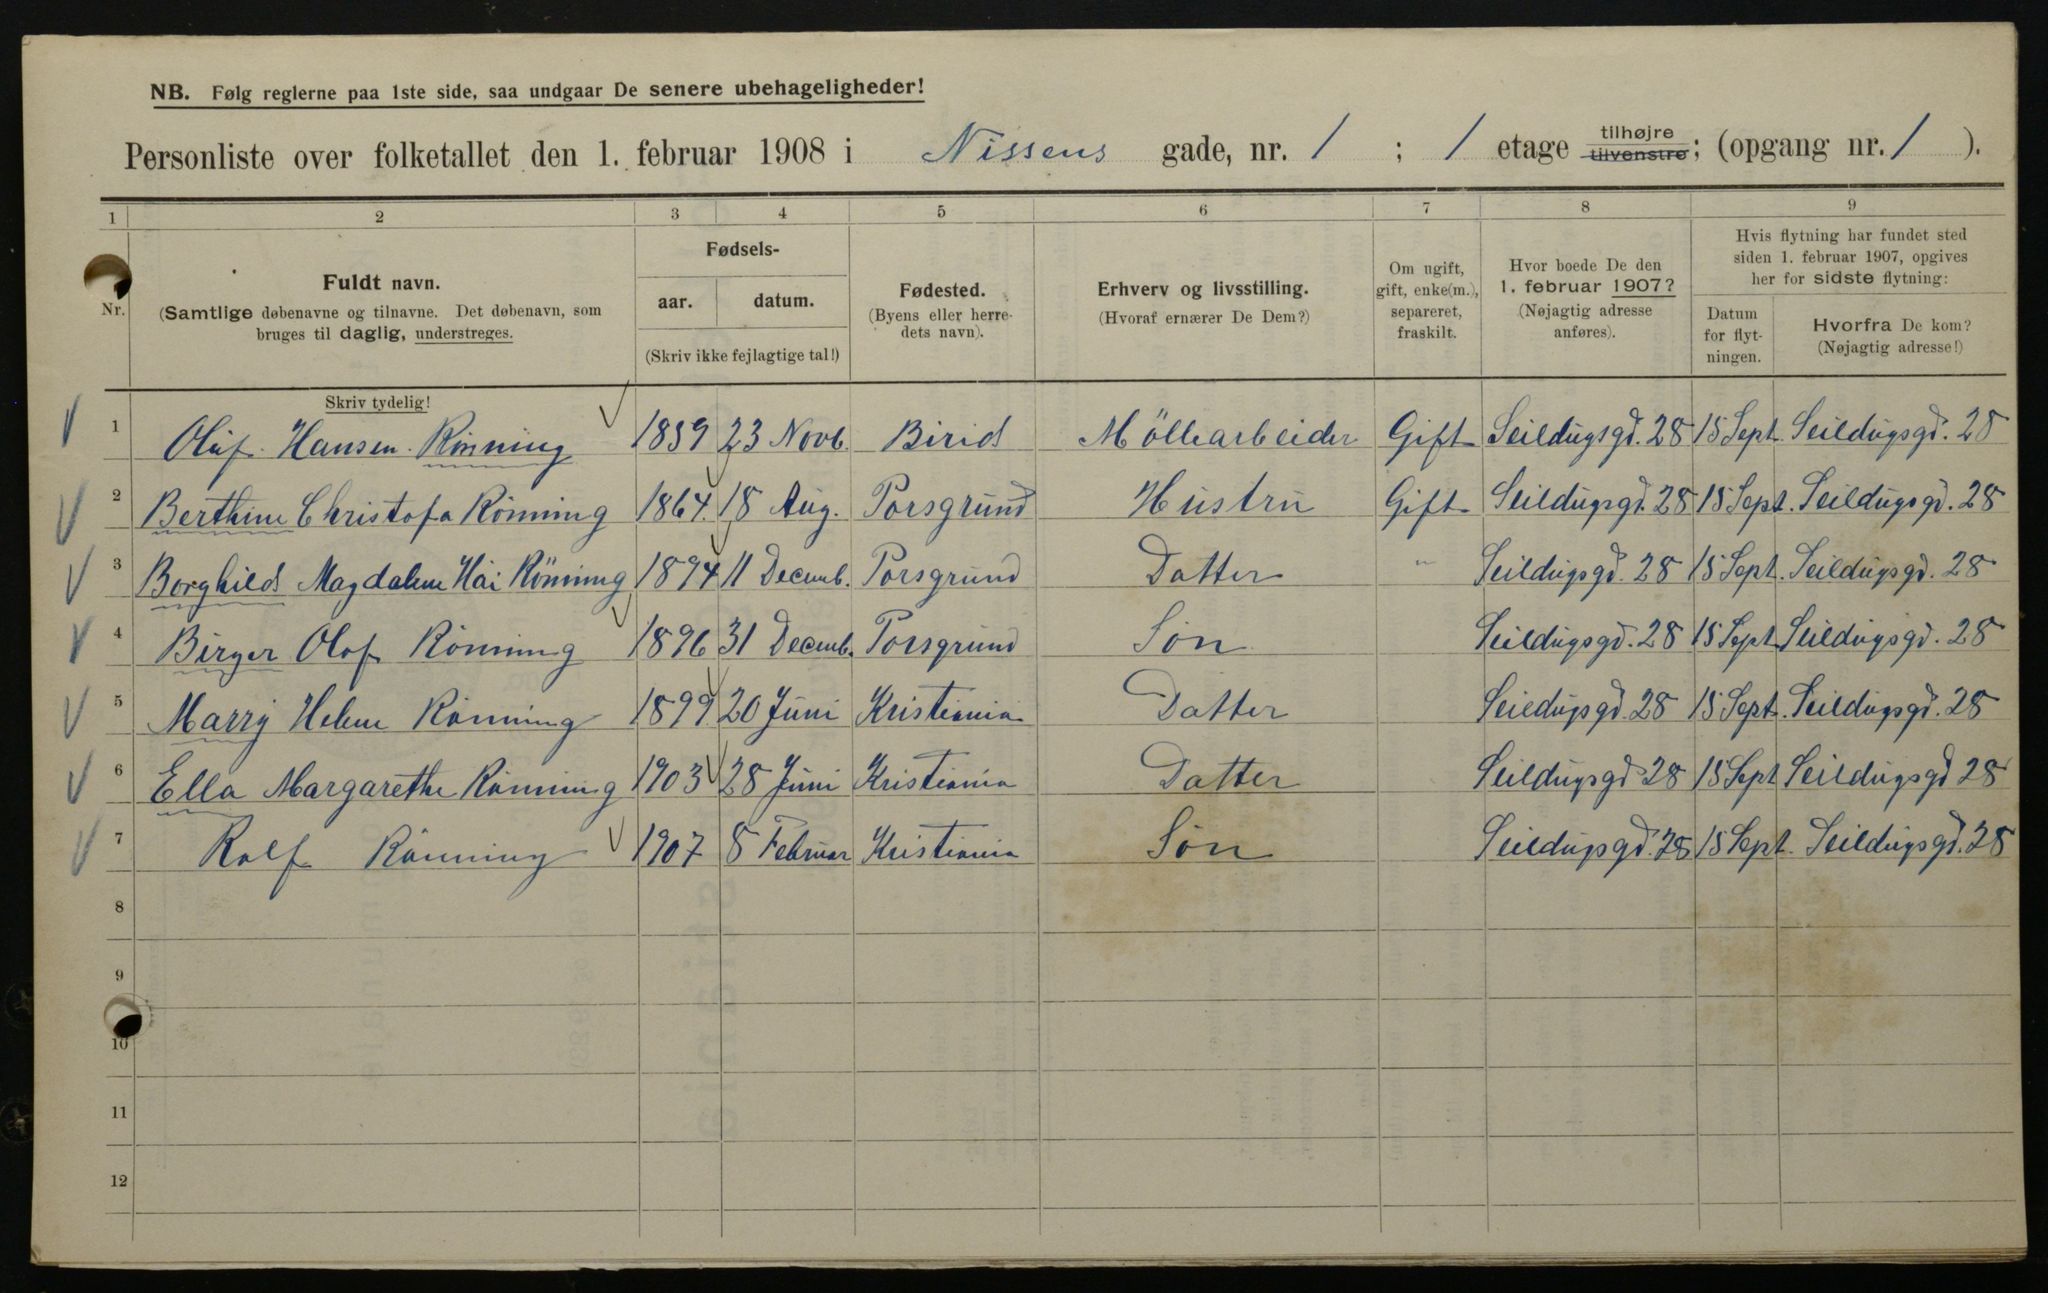 NB. Følg reglerne paa 1ste side, saa undgaar De senere ubehageligheder!
Personliste over folketallet den 1. februar 1908 i Nissens gade, nr. 1 ; 1 etage tilhøjre tilvenstre; (opgang nr. 1 ).
1 2 3 4 5 6 7 8 9
Nr.
Fuldt navn.
(Samtlige døbenavne og tilnavne. Det døbenavn, som
bruges til daglig, understreges.
Skriv tydelig!
Fødsels-
aar. datum.
(Skriv ikke fejlagtige tal!)
Fødested.
(Byens eller herre-
dets navn).
Erhverv og livsstilling.
(Hvoraf ernærer De Dem?)
Om ugift,
gift, enke(m.),
separeret,
fraskilt.
Hvor boede De den
1. februar 1907?
(Nøjagtig adresse
anføres).
Hvis flytning har fundet sted
siden 1. februar 1907, opgives
her for sidste flytning:
Datum
for flyt-
ningen.
Hvorfra De kom?
(Nøjagtig adresse!)
1 Oluf Hansen Rönning 1859 23 Novb. Birid Möllearbeider Gift Seildugsgd. 28 15 Sept. Seildugsgd. 28
2 Berthine Christofa Rönning 1864 18 Aug. Porsgrund Hustru Gift Seildugsgd. 28 15 Sept. Seildugsgd. 28
3 Borghild Magdalene Rönning 1894 11 Decemb. Porsgrund Datter " Seildugsgd. 28 15 Sept. Seildugsgd. 28
4 Birger Olaf Rönning 1896 31 Decemb. Porsgrund Sön Seildugsgd. 28 15 Sept Seildugsgd. 28
5 Marry Helene Rönning 1899 20 Juni Kristiania Datter Seildugsgd. 28 15 Sept. Seildugsgd. 28
6 Ella Margarethe Rönning 1903 28 Juni Kristiania Datter Seildugsgd 28 15 Sept Seildugsgd 28
7 Rolf Rönning 1907 8 Februar Kristiania Sön Seildugsgd. 28 15 Sept. Seildugsgd. 28
8
9
10
11
12